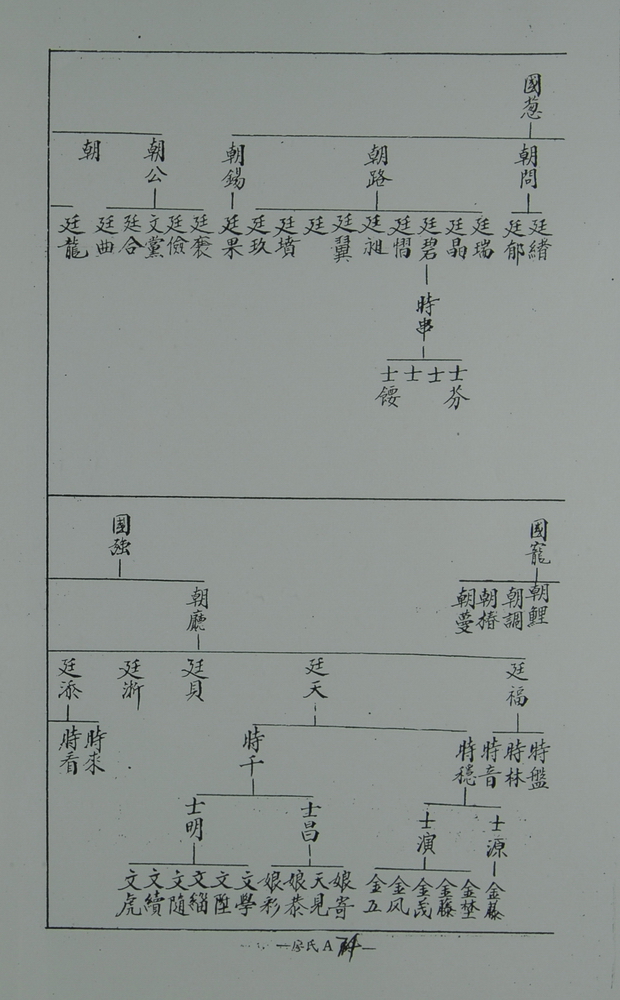 國葱
朝問
朝路
朝錫
朝公
朝
廷緒
廷郁
廷瑞
廷晶
廷碧
廷慴
廷昶
廷翼
廷
廷墳
廷玖
廷果
廷褒
廷儉
文黨
廷合
廷曲
廷龍
時串
士芬
士
士
士餒
國寵
國強
朝鯉
朝調
朝椿
朝蔓
朝廳
廷福
廷天
廷貝
廷浙
廷添
時盤
時林
時音
時穩
時千
時來
時看
士源
士演
士昌
士明
金藤
金埜
金藤
金茂
金风
金五
娘寄
天見
娘恭
娘彩
文學
文陞
文緇
文随
文續
文虎
氏A